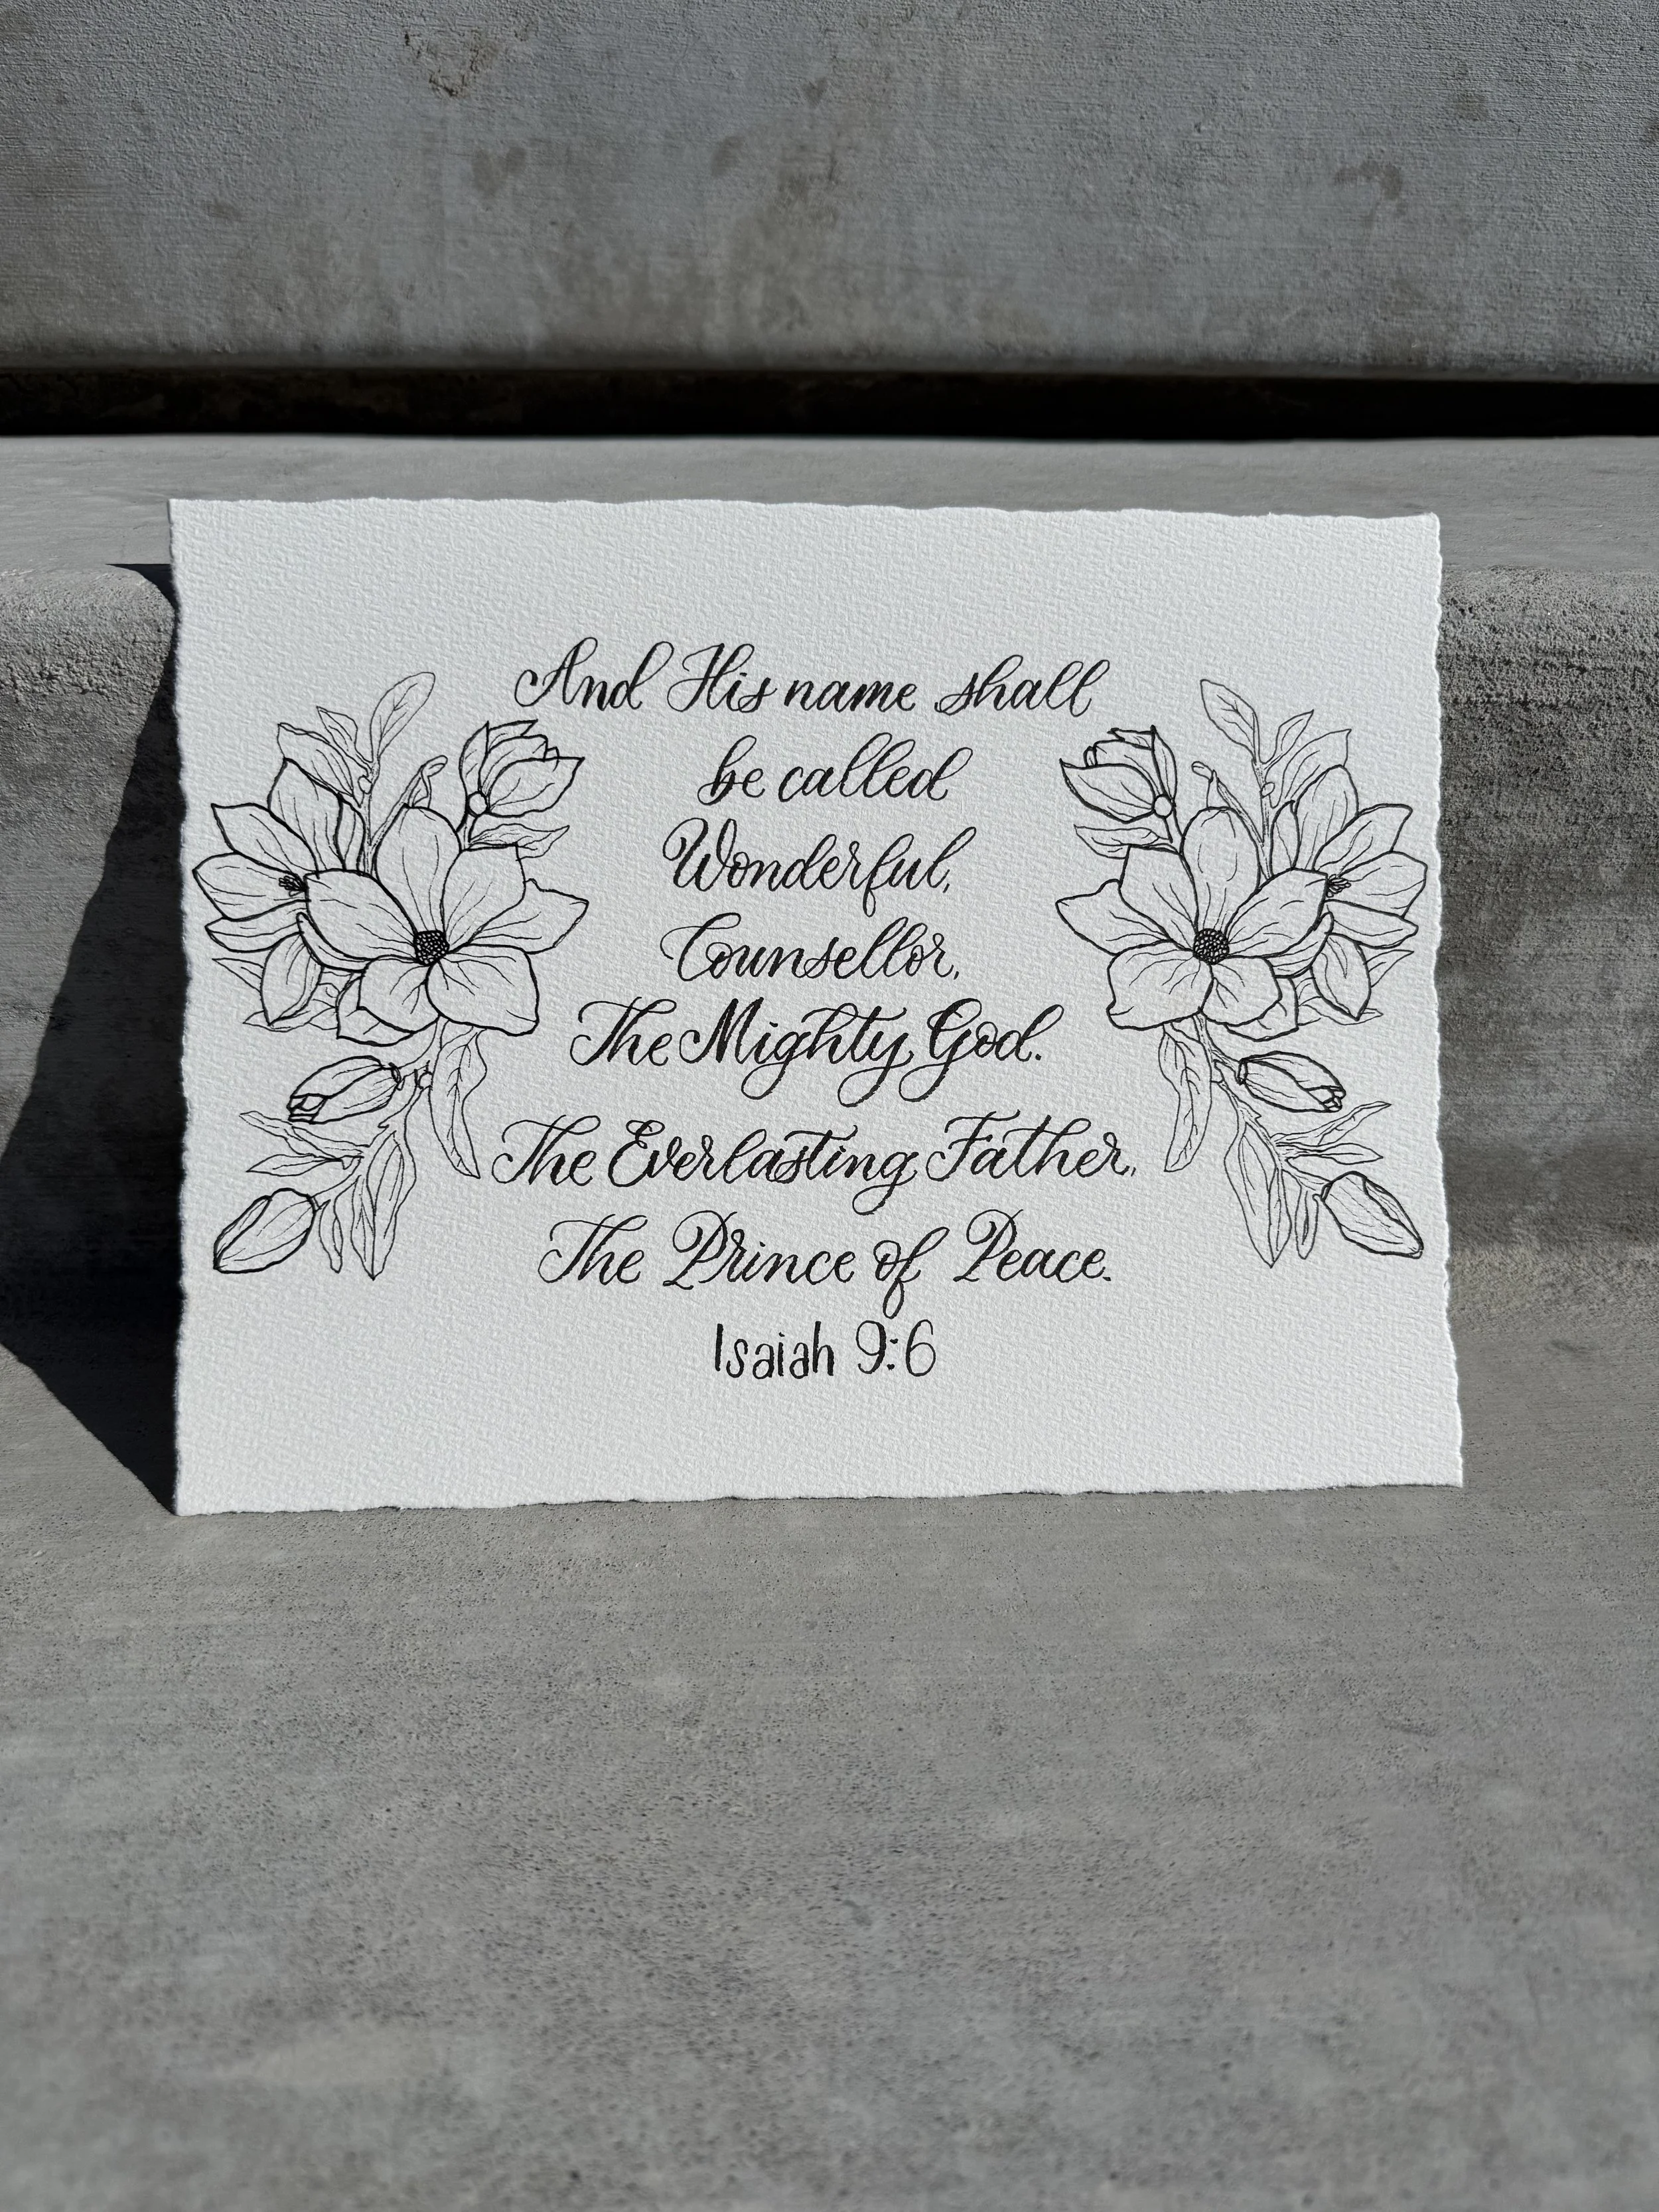 And His name shall
be called
Wonderful,
Counsellor,
The Mighty God.
The Everlasting Father,
The Prince of Peace.
Isaiah 9:6